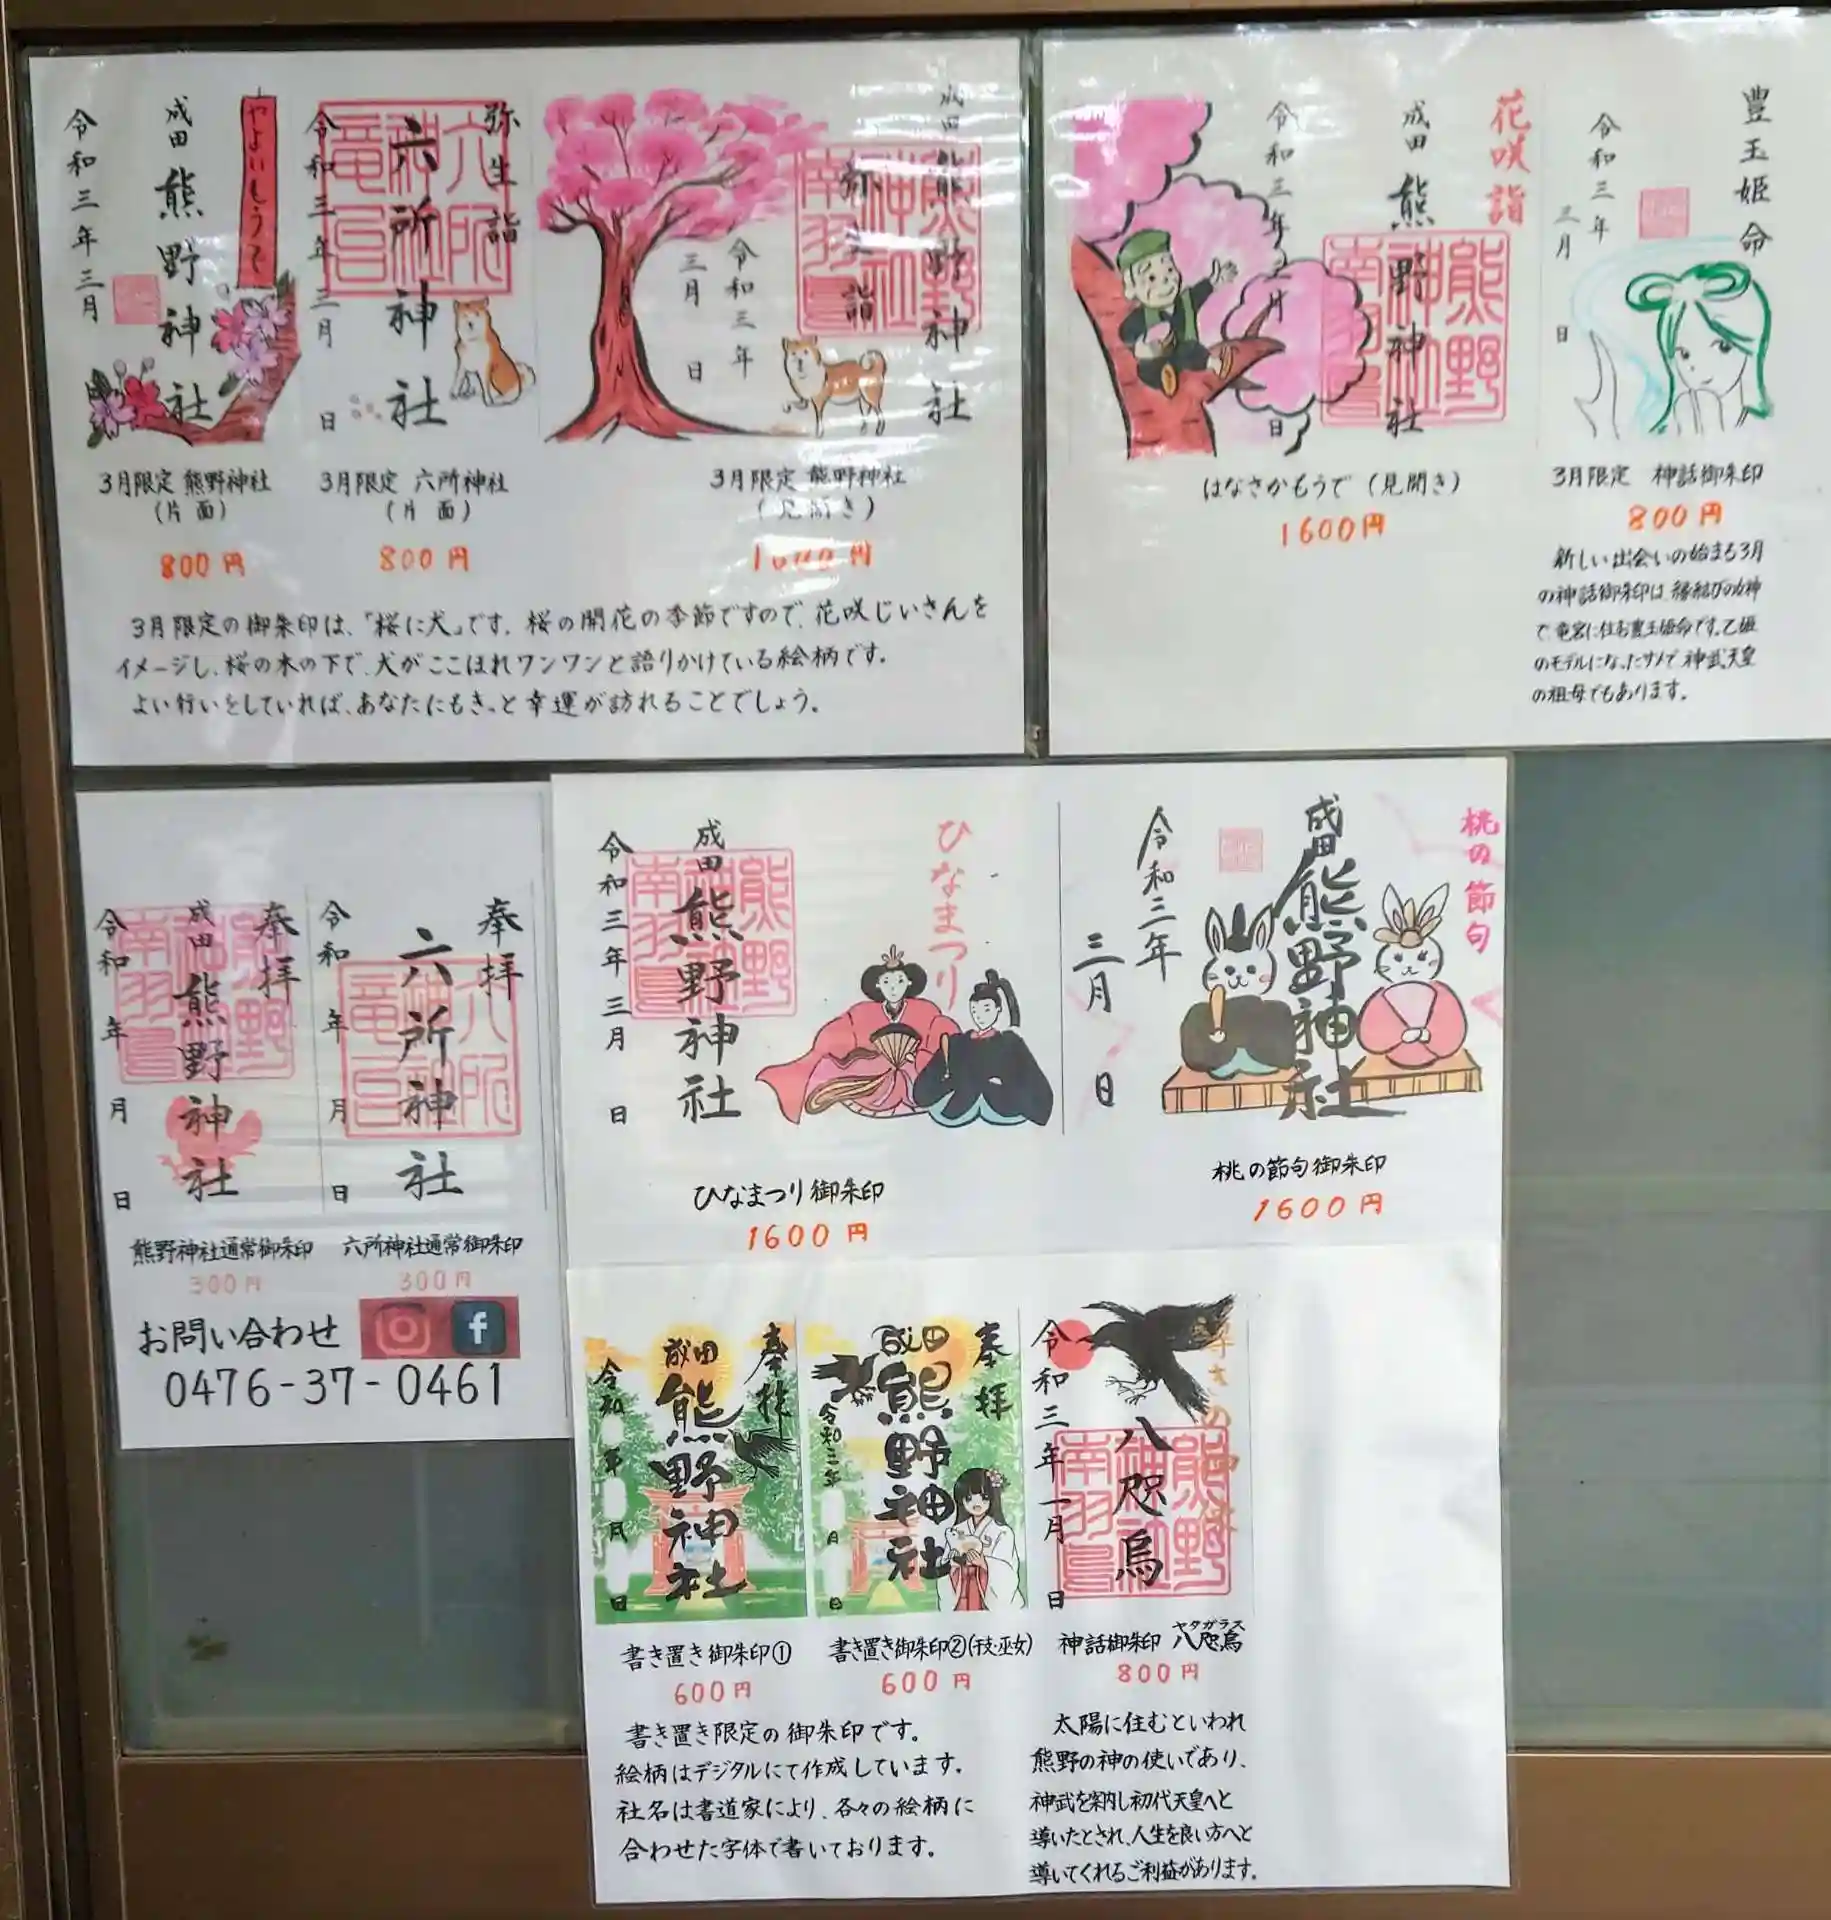 やよいもうで
成田
熊野神社
令和三年三月
弥生詣
六所神社
令和三年三月
日
成田
熊野神社
弥生詣
令和三年
三月
日
3月限定 熊野神社
(片面)
800円
3月限定 六所神社
(片面)
800円
3月限定 熊野神社
(見開き)
1600円
3月限定の御朱印は、「桜に犬」です。桜の開花の季節ですので、花咲じいさんを
イメージし、桜の木の下で、犬がここほれワンワンと語りかけている絵柄です。
よい行いをしていれば、あなたにもきっと幸運が訪れることでしょう。
花咲詣
成田
熊野神社
令和三年三月
日
はなさかもうで(見開き)
1600円
豊玉姫命
令和三年
三月
日
3月限定 神話御朱印
800円
新しい出会いの始まる3月
の神話御朱印は縁結びの女神
で、竜宮に住む豊玉姫命です。乙姫
のモデルになったサメで、神武天皇
の祖母でもあります。
奉拝
成田
熊野神社
令和 年 月 日
奉拝
六所神社
令和 年 月 日
熊野神社通常御朱印
300円
六所神社通常御朱印
300円
お問い合わせ
0476-37-0461
ひなまつり
成田
熊野神社
令和三年三月 日
ひなまつり御朱印
1600円
桃の節句
成田
熊野神社
令和三年
三月
日
桃の節句御朱印
1600円
奉拝
成田
熊野神社
令和 年 月 日
書き置き御朱印①
600円
奉拝
成田
熊野神社
令和三年 月 日
書き置き御朱印②(干支・巫女)
600円
書き置き限定の御朱印です。
絵柄はデジタルにて作成しています。
社名は書道家により、各々の絵柄に
合わせた字体で書いております。
八咫烏
令和三年一月 日
神話御朱印 八咫烏
ヤタガラス
800円
太陽に住むといわれ
熊野の神の使いであり、
神武を案内し初代天皇へと
導いたとされ、人生を良い方へと
導いてくれるご利益があります。